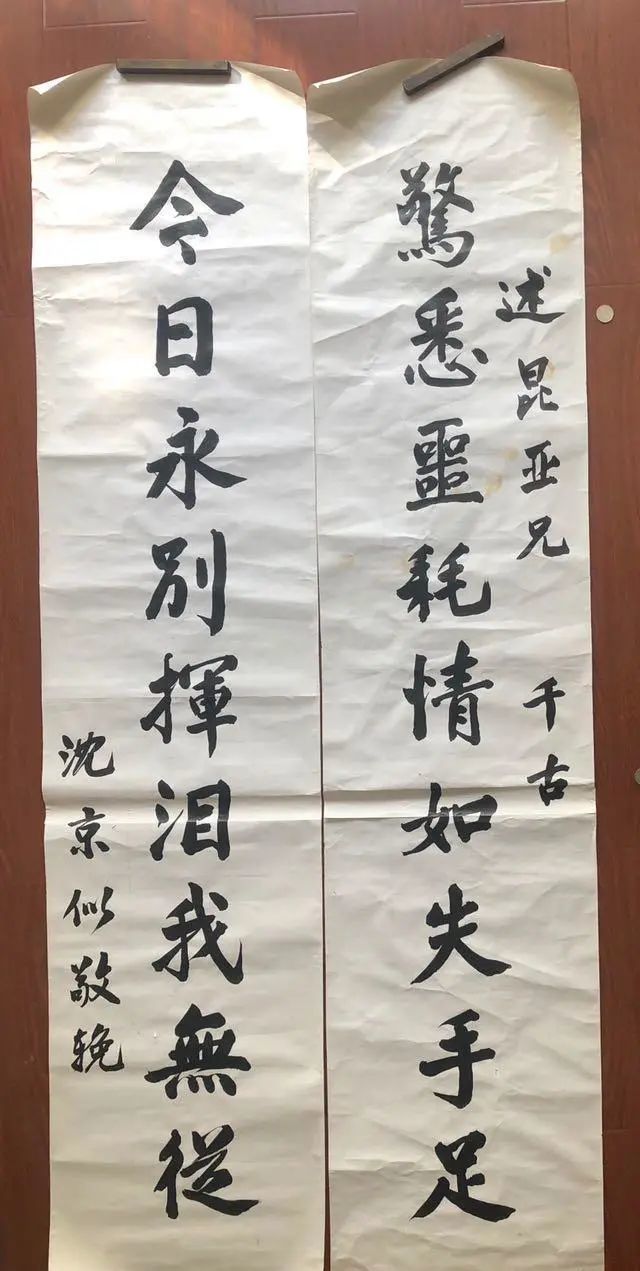 述昆亚兄 千古
驚悉噩耗情如失手足
今日永别揮泪我無從
沈京似敬輓